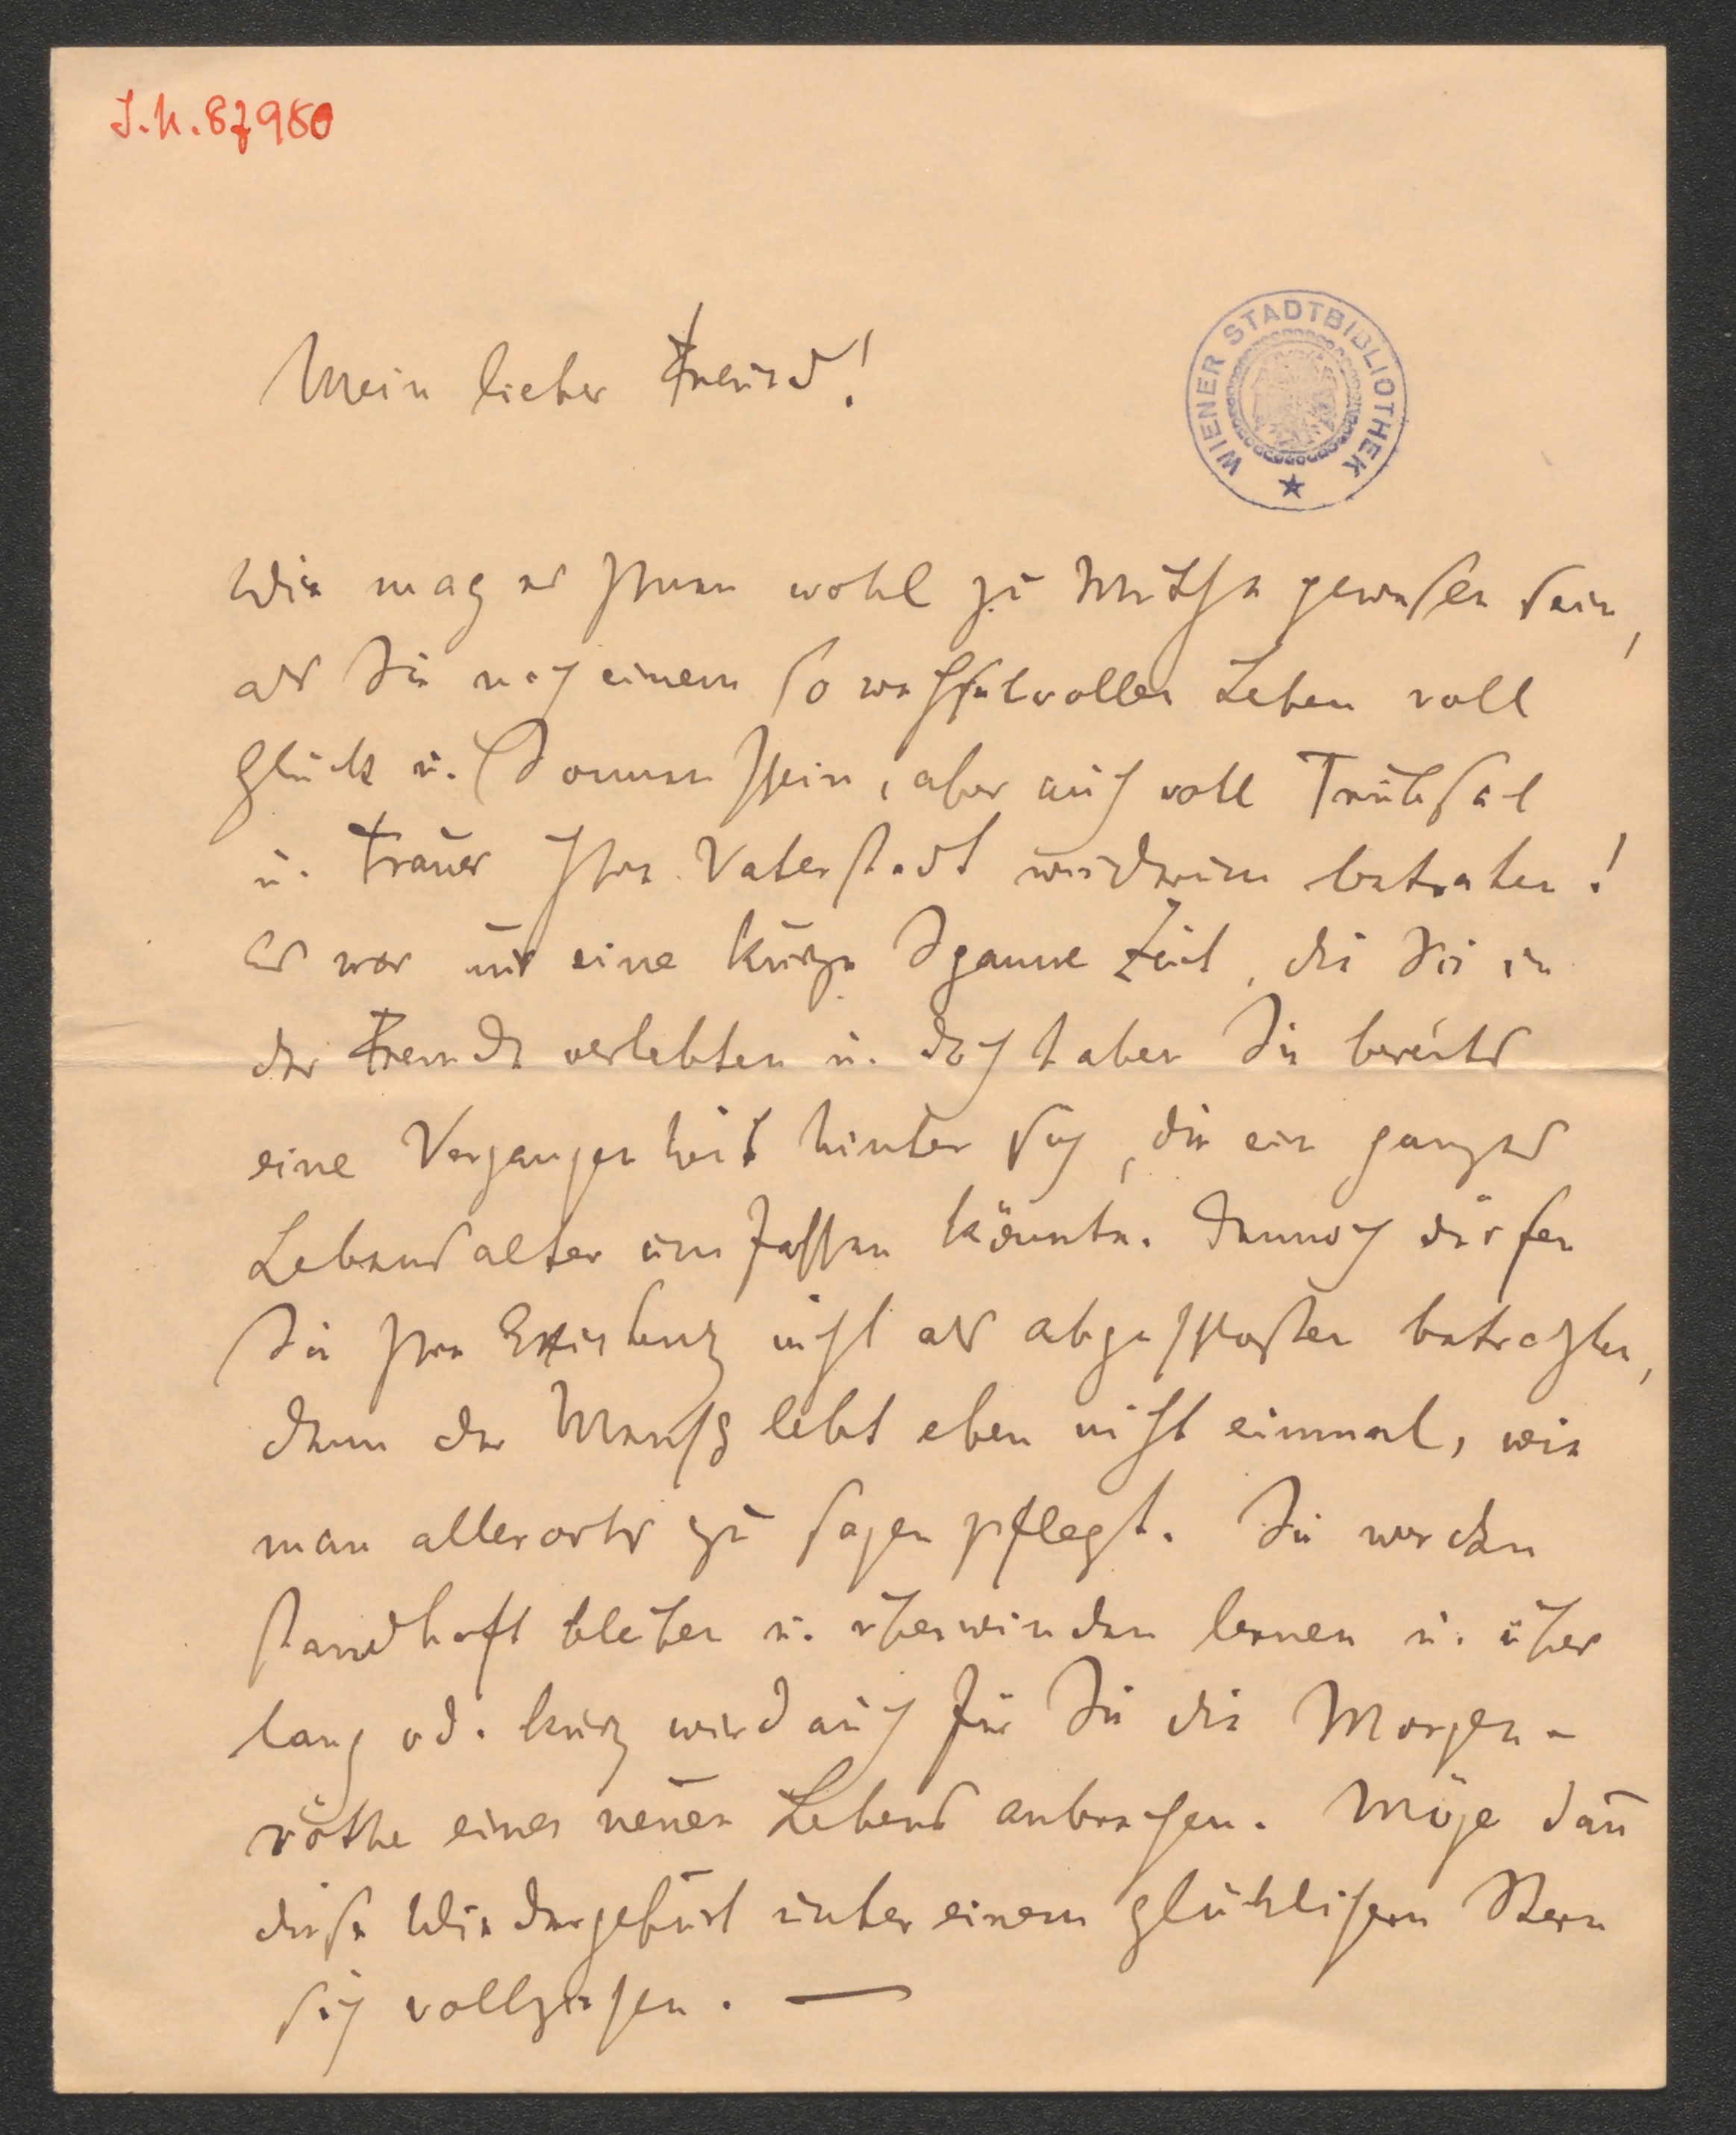 I.N. 87980
Mein lieber Freund!
WIENER STADTBIBLIOTHEK
Wie mag es Ihnen wohl zu Muthe gewesen sein,
als Sie nach einem so wechselvollen Leben voll
Glück u. Sonnenschein, aber auch voll Trübsal
u. Trauer Ihre Vaterstadt wiederum betraten!
Es war nur eine kurze Spanne Zeit, die Sie in
der Fremde verlebten u. doch haben Sie bereits
eine Vergangenheit hinter sich, die ein ganzes
Lebensalter umfassen könnte. Dennoch dürfen
Sie Ihre Existenz nicht als abgeschlossen betrachten,
denn der Mensch lebt eben nicht einmal, wie
man allerorts zu sagen pflegt. Sie werden
standhaft bleiben u. überwinden lernen u. über
lang od. kurz wird auch für Sie die Morgen-
röthe eines neuen Lebens anbrechen. Möge dan̅
diese Wiedergeburt unter einem glücklichern Stern
sich vollziehen. —